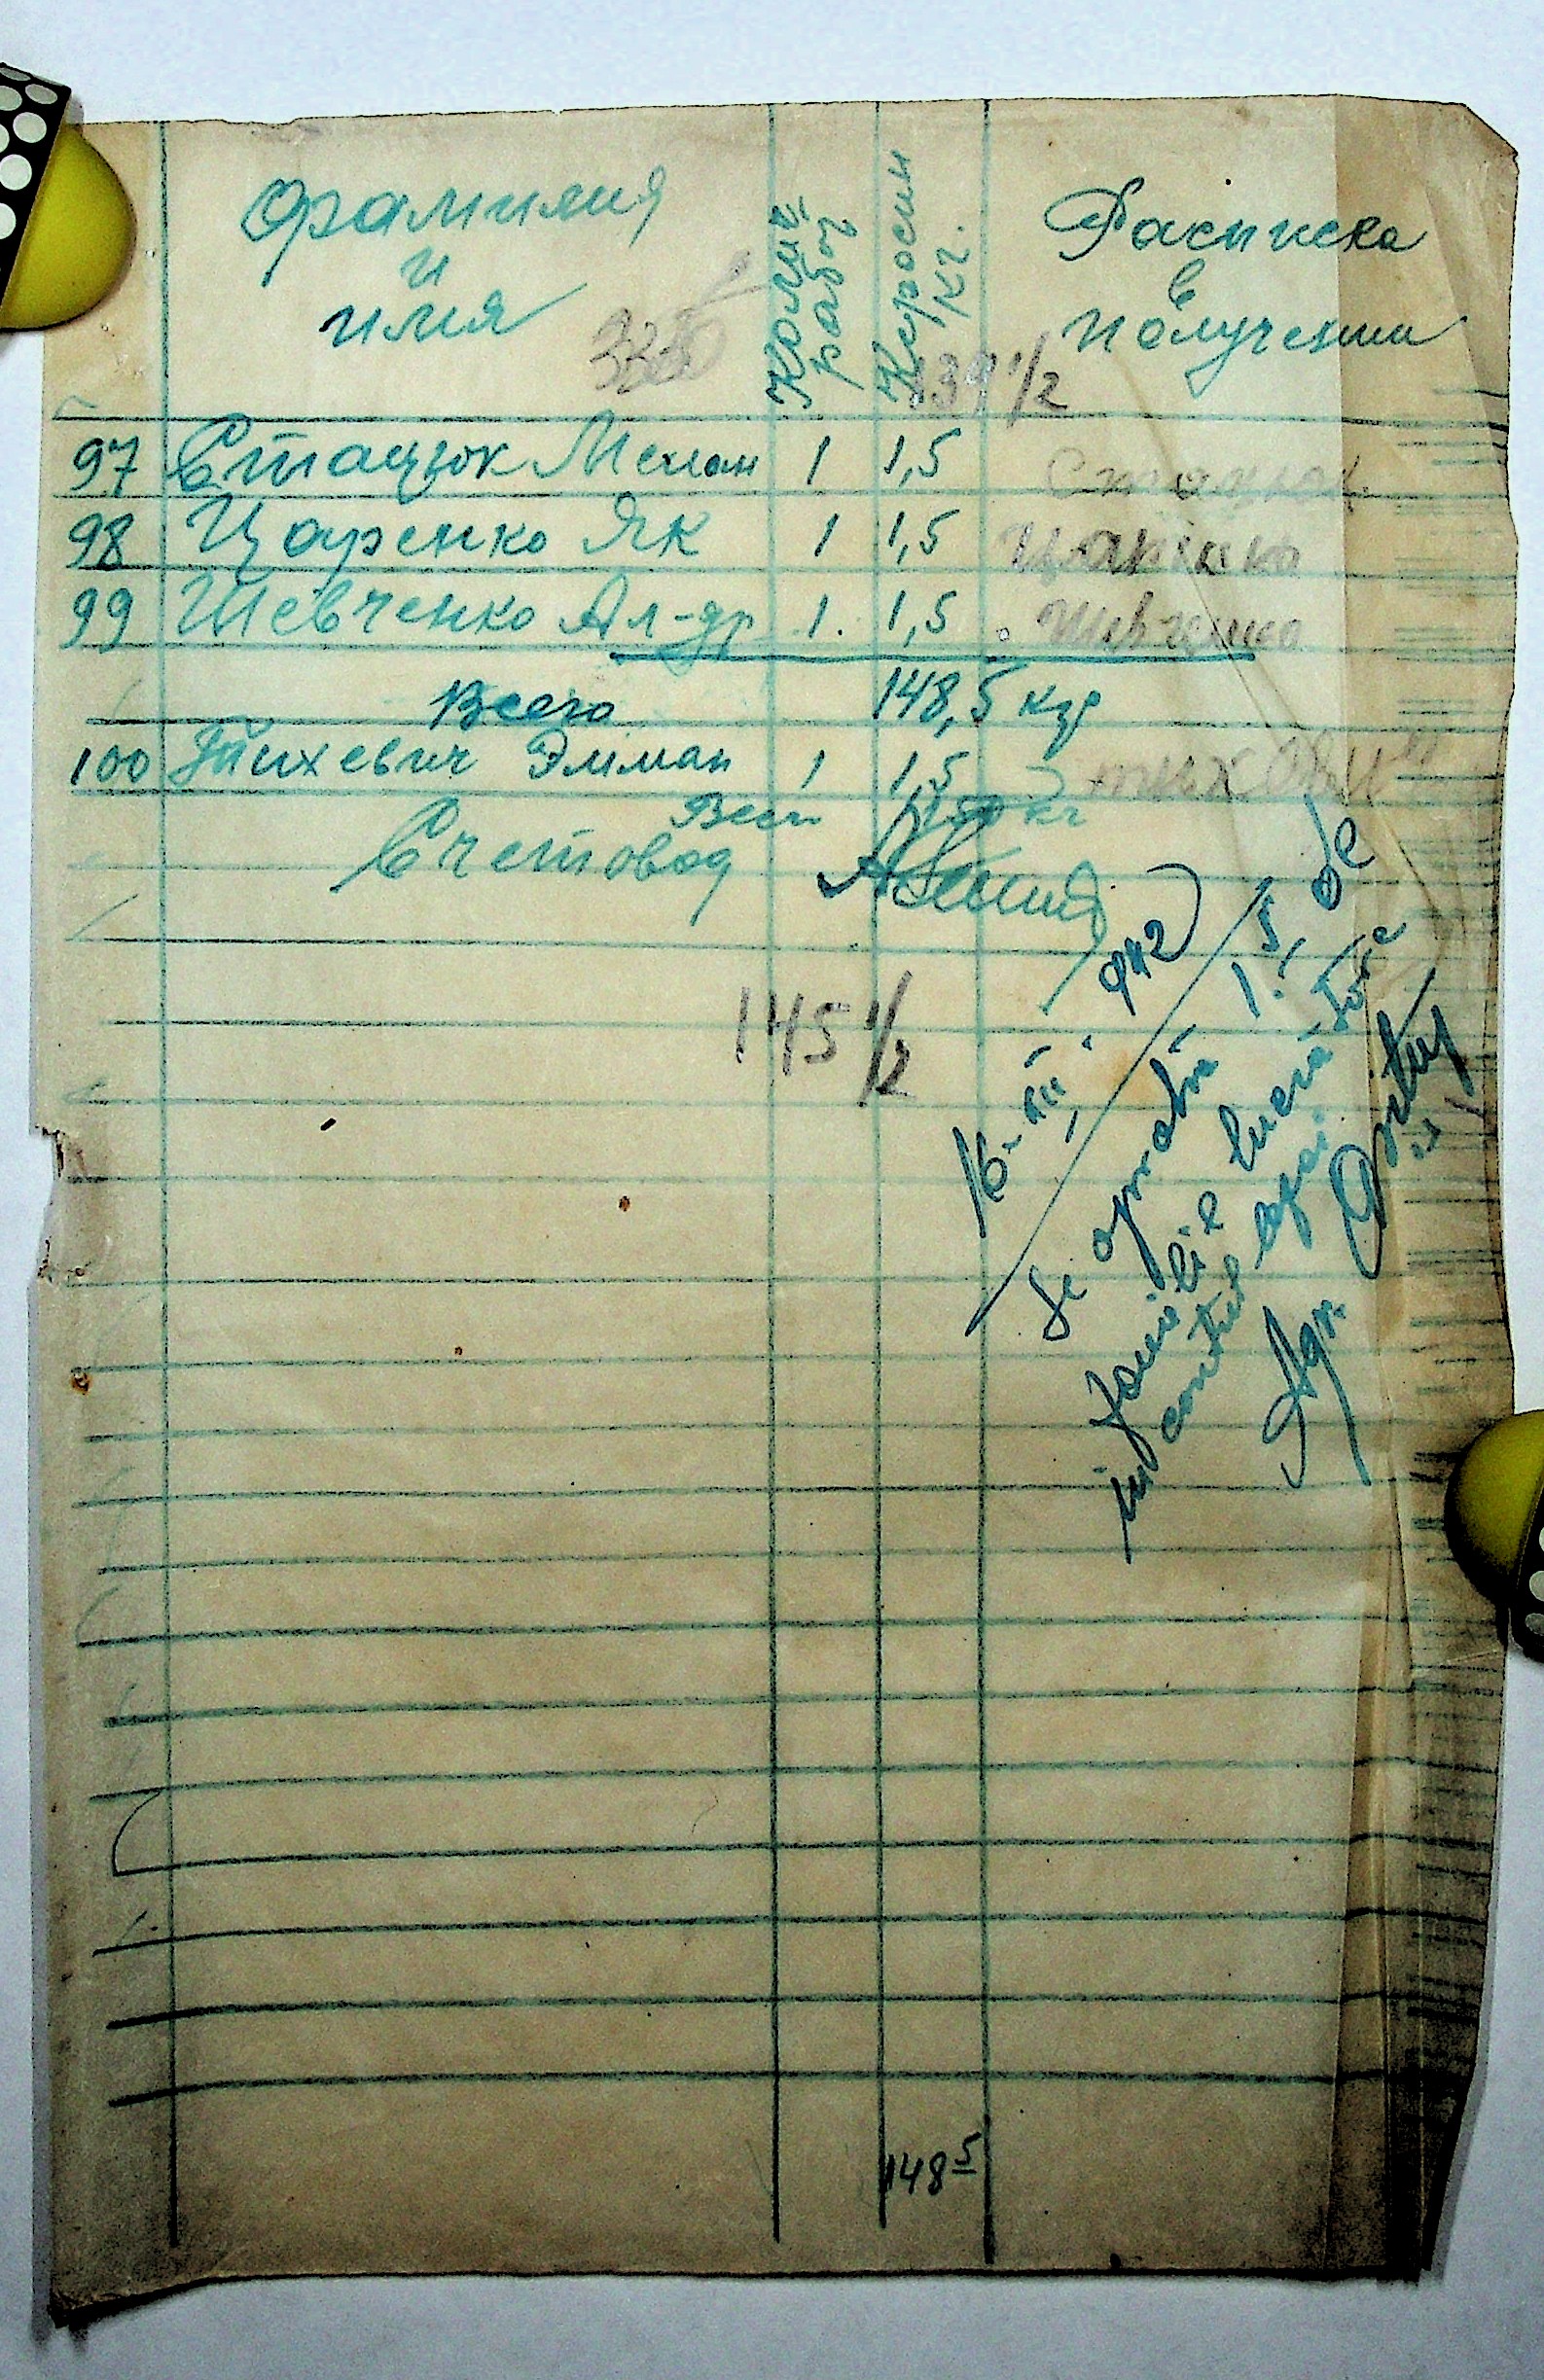 Фамилия
и
имя
Колич.
работ
Керосин
кг.
Расписка
в
получении
139 1/2
97 Стацюк Мелан 1 1,5
98 Царенко Як 1 1,5 Царенко
99 Шевченко Ал-др 1. 1,5 Шевченко
Всего 148,5 кгр
100 Тихевич Эмман 1 1,5
Всего 150 кг
Счетовод
145 1/2
16-XII-942
Se aprobă 1,5 de
familie lucrătoare
în contul
Agr.
148 5